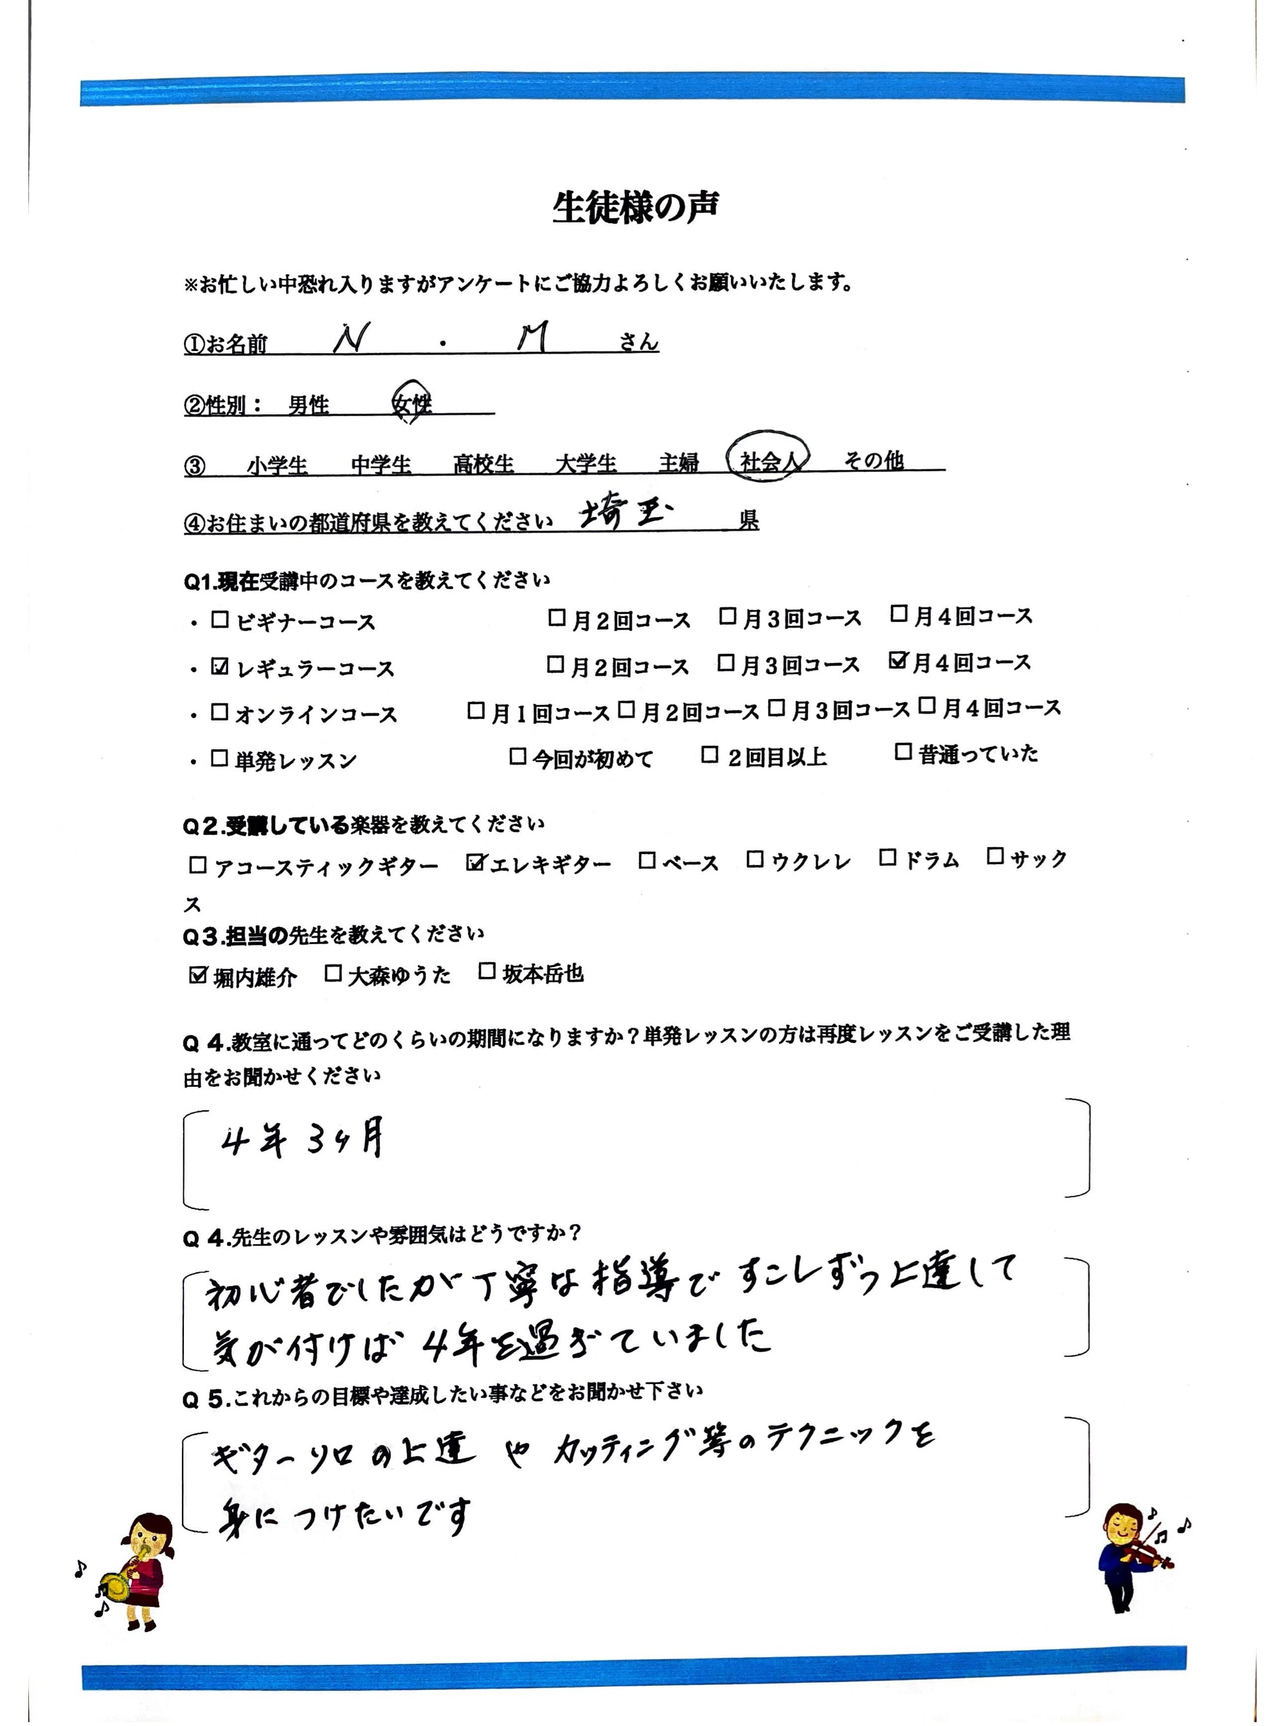 生徒様の声
※お忙しい中恐れ入りますがアンケートにご協力よろしくお願いいたします。
①お名前 N ・ M さん
②性別： 男性 女性
③ 小学生 中学生 高校生 大学生 主婦 社会人 その他
④お住まいの都道府県を教えてください 埼玉 県
Q1.現在受講中のコースを教えてください
・☐ビギナーコース ☐月２回コース ☐月３回コース ☐月４回コース
・☑レギュラーコース ☐月２回コース ☐月３回コース ☑月４回コース
・☐オンラインコース ☐月１回コース☐月２回コース☐月３回コース☐月４回コース
・☐単発レッスン ☐今回が初めて ☐２回目以上 ☐昔通っていた
Q２.受講している楽器を教えてください
☐アコースティックギター ☑エレキギター ☐ベース ☐ウクレレ ☐ドラム ☐サック
ス
Q３.担当の先生を教えてください
☑堀内雄介 ☐大森ゆうた ☐坂本岳也
Q ４.教室に通ってどのくらいの期間になりますか？単発レッスンの方は再度レッスンをご受講した理
由をお聞かせください
4年3ヶ月
Q ４.先生のレッスンや雰囲気はどうですか？
初心者でしたが丁寧な指導ですこしずつ上達して
気が付けば4年を過ぎていました
Q ５.これからの目標や達成したい事などをお聞かせ下さい
ギターソロの上達やカッティング等のテクニックを
身につけたいです